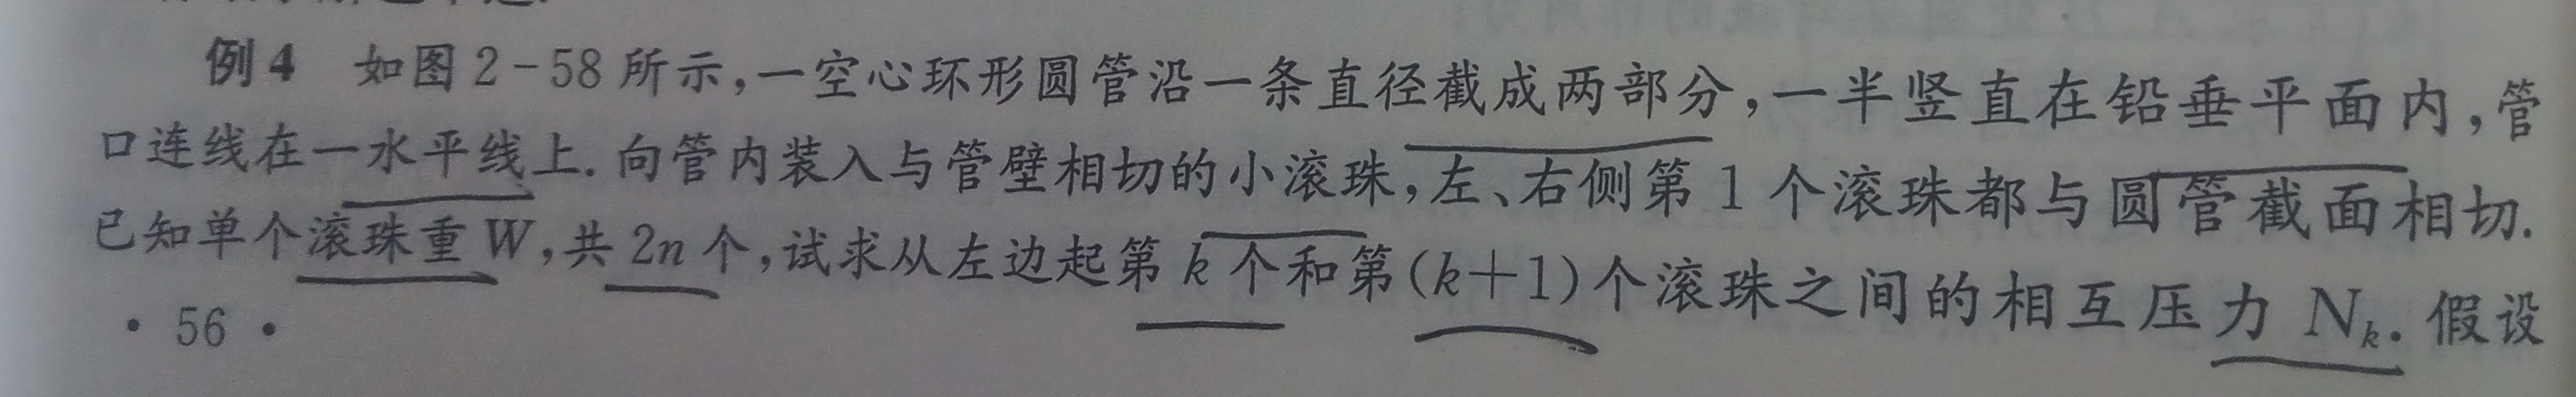 例4 如图2-58所示,一空心环形圆管沿一条直径截成两部分,一半竖直在铅垂平面内,管
口连线在一水平线上.向管内装入与管壁相切的小滚珠,左、右侧第1个滚珠都与圆管截面相切.
已知单个滚珠重W,共2n个,试求从左边起第k个和第(k+1)个滚珠之间的相互压力 Nₖ.假设
· 56 ·